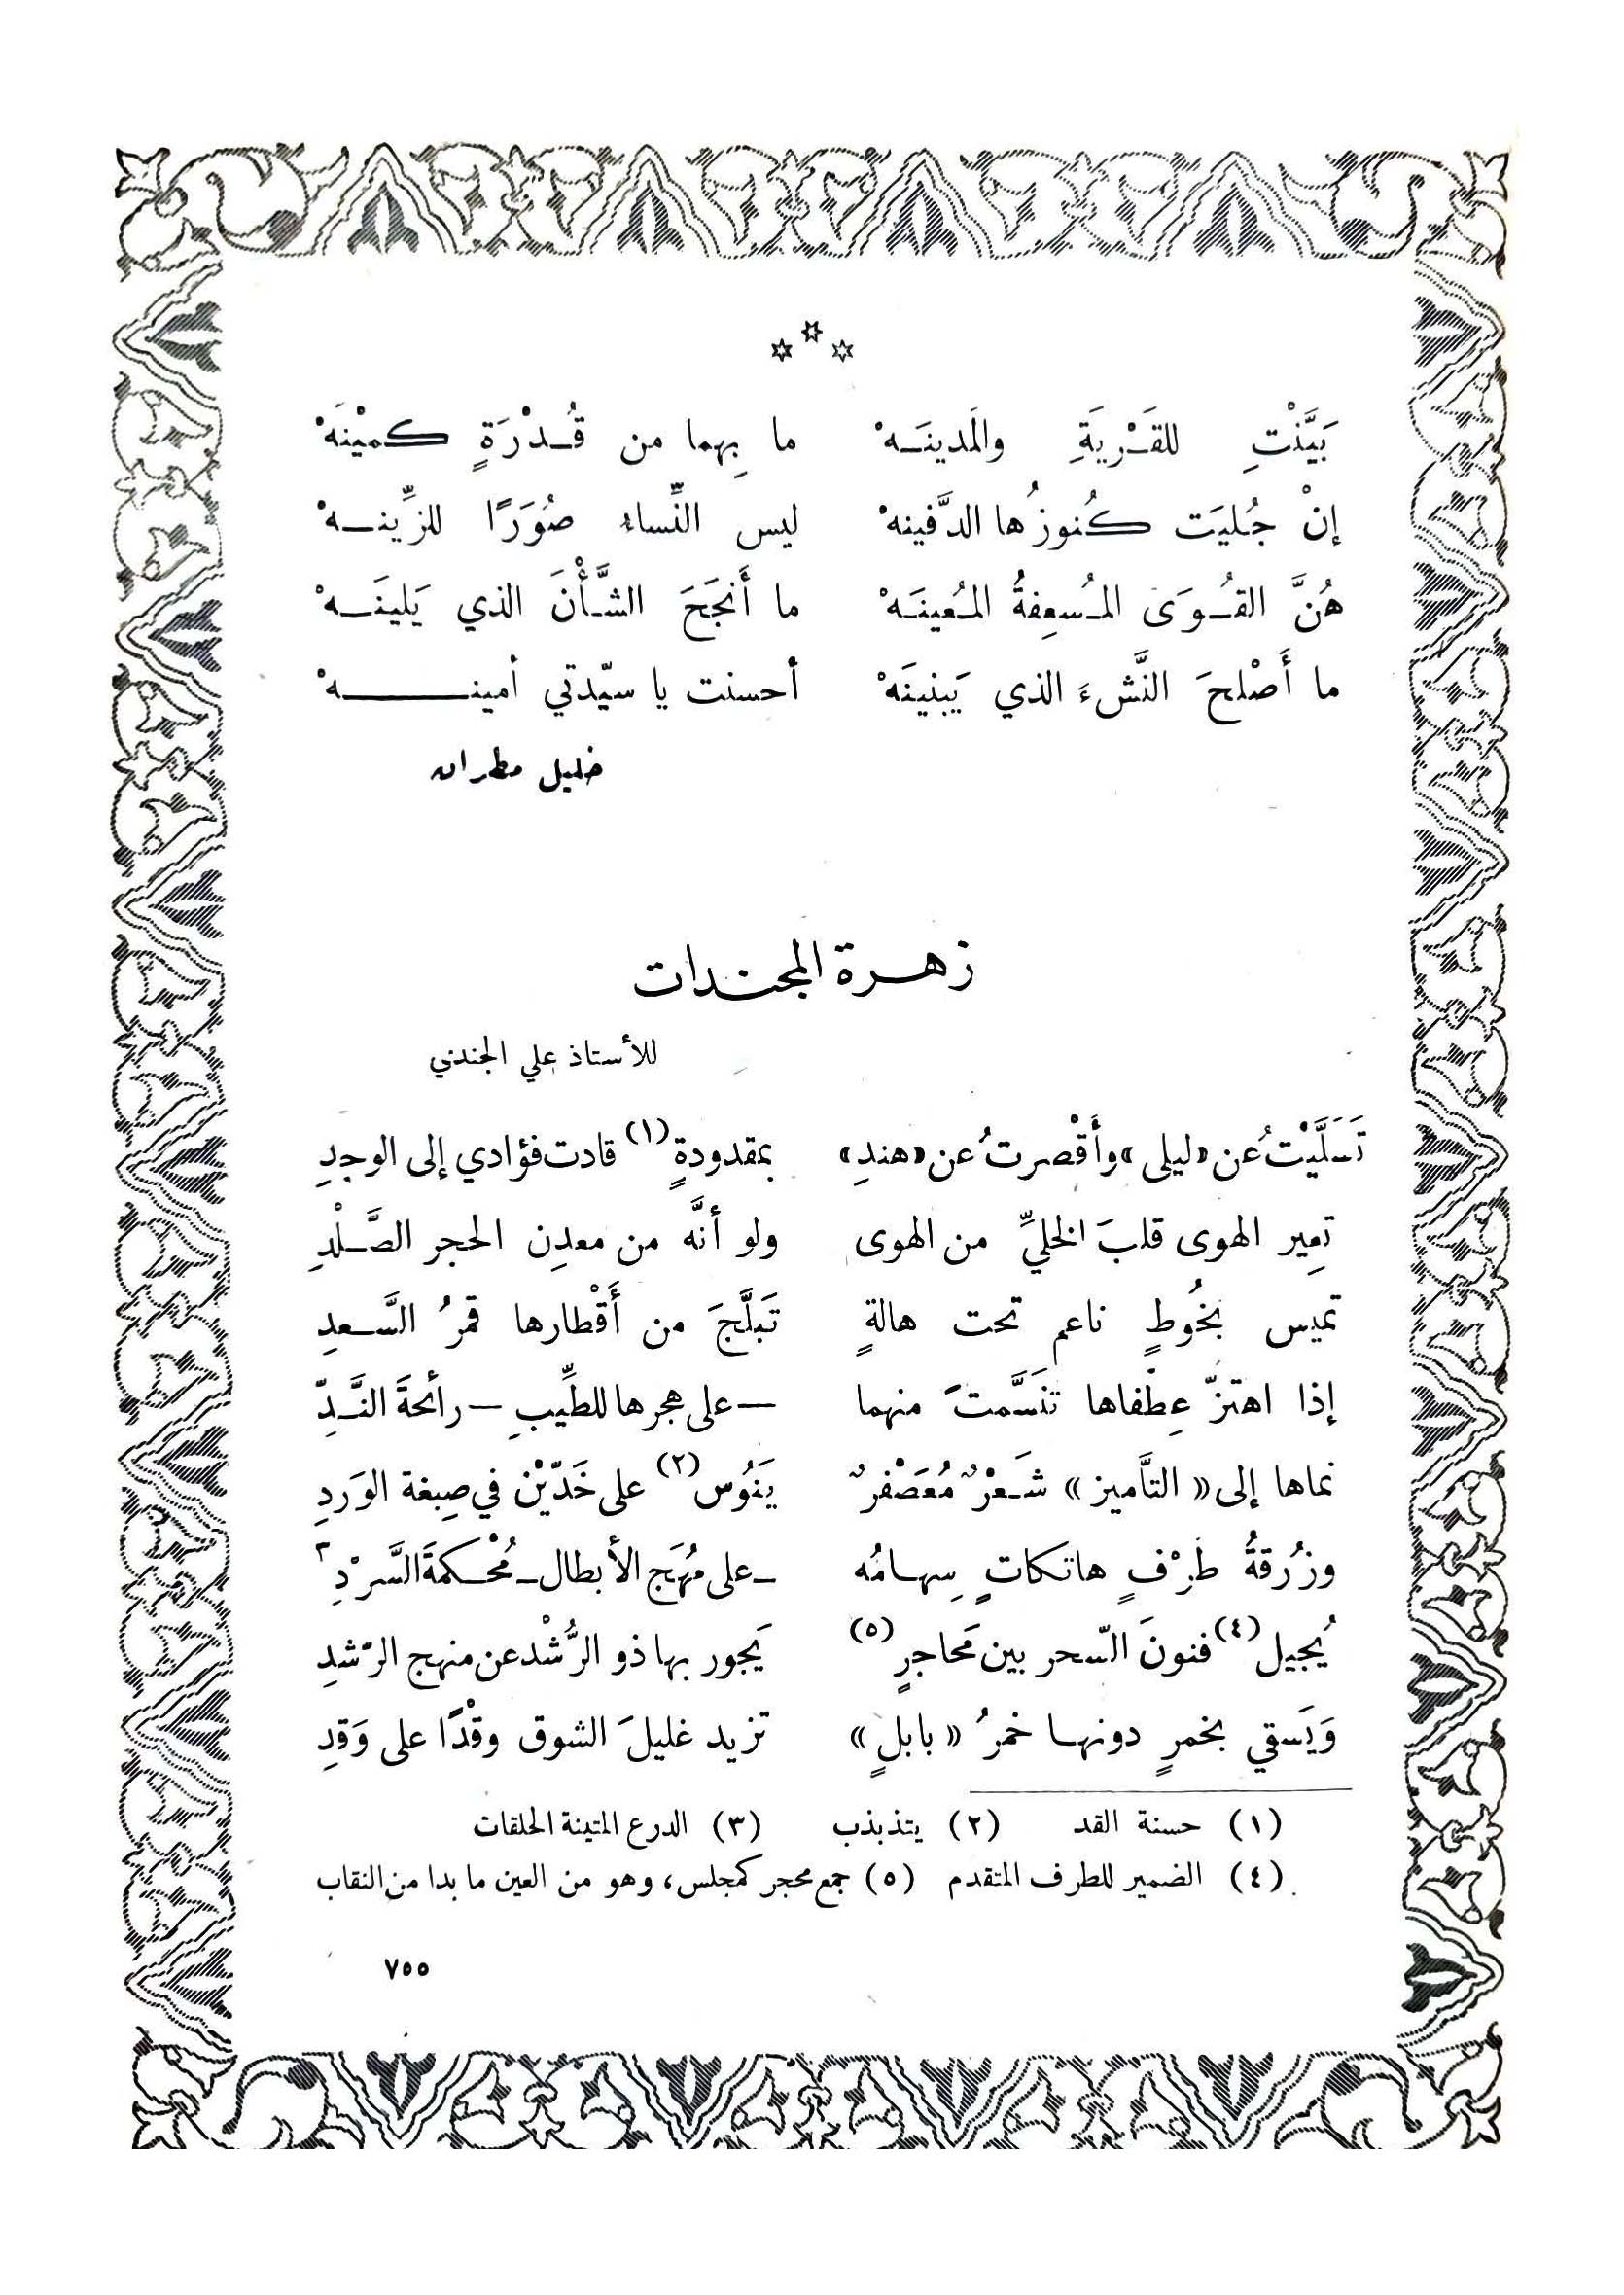 بَيَّنْتِ للقَرْيَةِ والمَدينَهْ ما بِهما من قُدْرَةٍ كمَيْنَهْ
إنْ جُليَت كُنوزُها الدَّفينهْ ليس النِّساءُ صُوَرًا للزِّينهْ
هُنَّ القُوَى المُسعِفةُ المُعينَهْ ما أَنجَحَ الشَّأْنَ الذي يَلينَهْ
ما أَصْلحَ النَّشْءَ الذي يَبنينَهْ أحسنت يا سيّدتي أمينهْ
خليل مطران
زهرة المجندات
للأستاذ علي الجندي
تَسَلَّيْتُ عن «ليلى» وأَقْصرتُ عن «هندِ» بمقدودةٍ (١) قادت فؤادي إلى الوجدِ
تعِير الهوى قلبَ الخليِّ من الهوى ولو أنَّه من معدِن الحجر الصَّلْدِ
تميس بخُوطٍ ناعم تحت هالةٍ تَبلَّجَ من أَقْطارها قمرُ السَّعدِ
إذا اهتزّ عِطْفاها تنَسَّمتَ منهما — على هجرها للطِّيبِ — رائحةَ النَّدِّ
نماها إلى « التَّاميز » شَعْرٌ مُعَصْفرٌ يَنُوس (٢) على خَدَّيْن في صِبغة الوَردِ
وزُرقةُ طَرْفٍ هاتكاتٍ سِهامُه — على مُهَج الأبطال — مُحْكمةَ السَّرْدِ ٣
يُجيل (٤) فنونَ السّحر بين مَحاجرٍ (٥) يَجور بها ذو الرُّشْد عن منهج الرّشدِ
وَيَسقي بخمرٍ دونها خمرُ « بابلٍ » تزيد غليلَ الشوق وقْدًا على وَقدِ
(١) حسنة القد (٢) يتذبذب (٣) الدرع المتينة الحلقات
(٤) الضمير للطرف المتقدم (٥) جمع محجر كمجلس، وهو من العين ما بدا من النقاب
٧٥٥